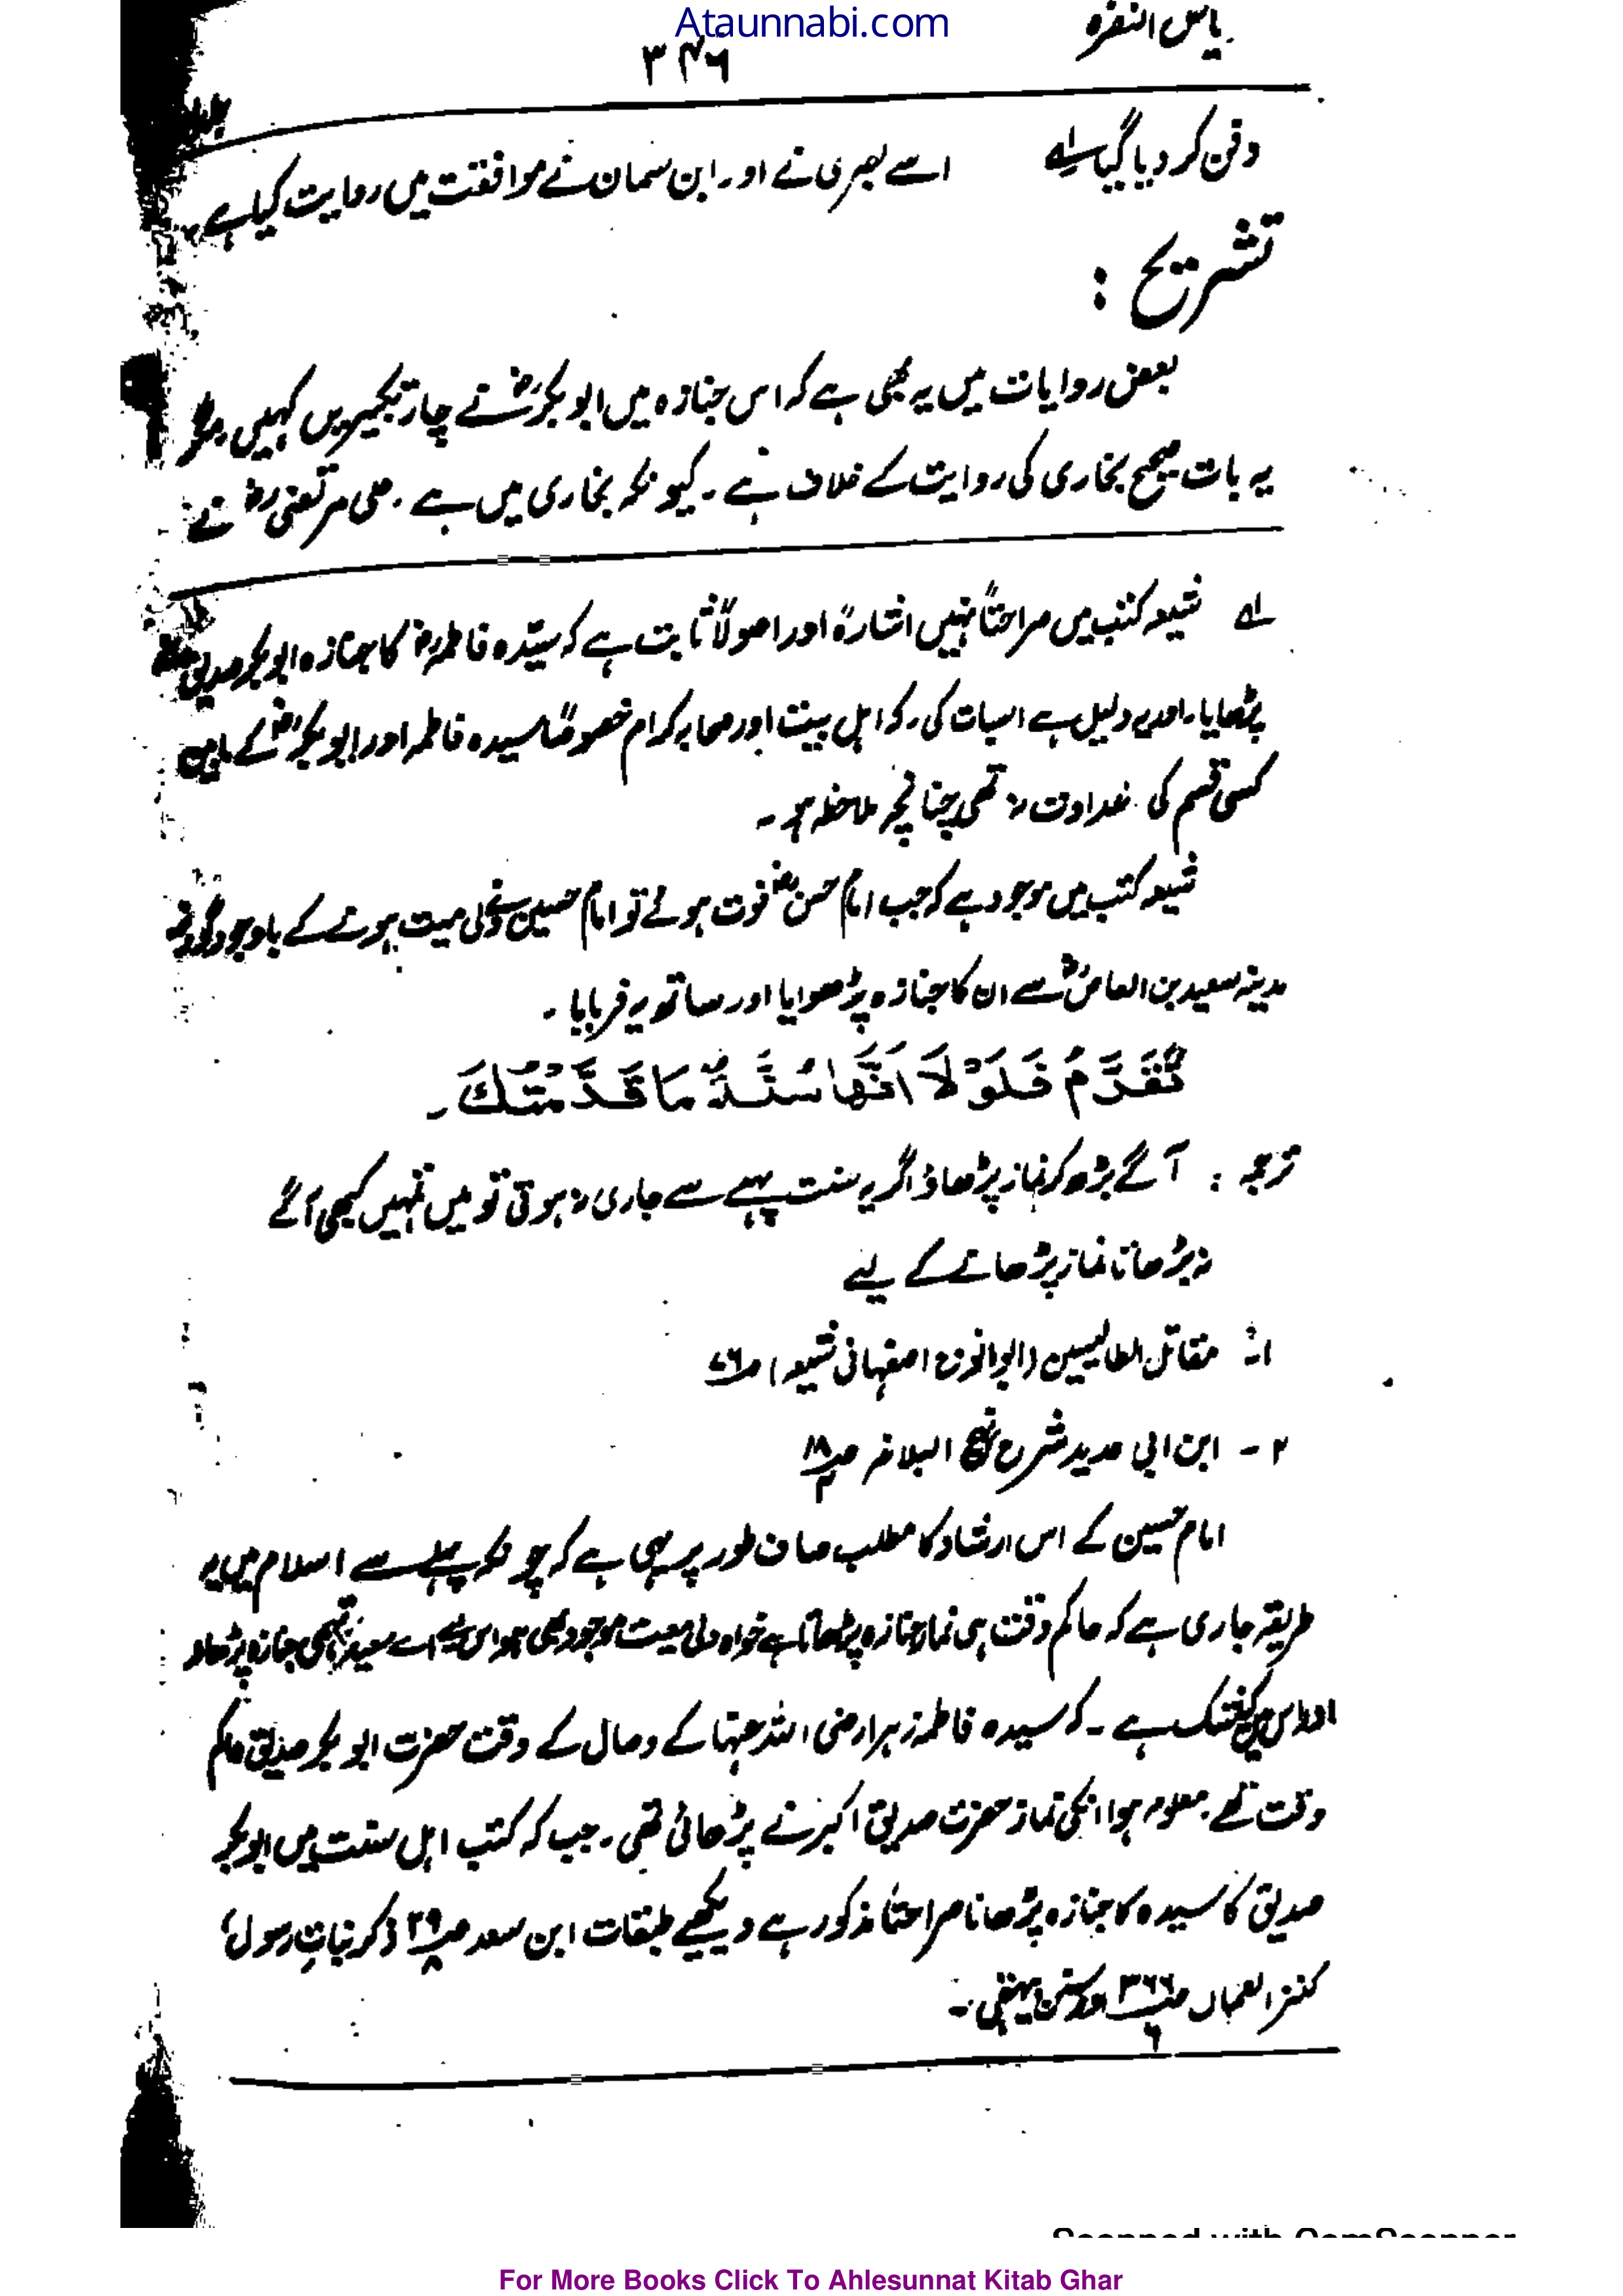 Ataunnabi.com
ریاض النضرہ
۳۴۶
دفن کر دیا گیا۔ لے اسے بصری نے اور ابن سمان نے موافقت میں روایت کیا ہے
تشریح :
بعض روایات میں یہ بھی ہے کہ اس جنازہ میں ابو بکرؓ نے چار تکبیریں کہیں۔ مگر
یہ بات صحیح بخاری کی روایت کے خلاف ہے۔ کیونکہ بخاری میں ہے۔ علی مرتضیٰ رضؓ نے
لے شیعہ کتب میں صراحتاً نہیں اشارۃً اور اصولاً ثابت ہے کہ سیّدہ فاطمہؓ کا جنازہ ابوبکر صدیقؓ نے
پڑھایا۔ اور یہ دلیل ہے اسبات کی۔ کہ اہل بیت اور صحابہ کرام خصوصاً سیدہ فاطمہ اور ابوبکرؓ کے مابین
کسی قسم کی عداوت نہ تھی چنانچہ ملاحظہ ہو۔
شیعہ کتب میں موجود ہے کہ جب امام حسنؓ فوت ہوئے تو امام حسینؓ نے ولی میت ہونے کے باوجود گورنر
مدینہ سعید بن العاصؓ سے ان کا جنازہ پڑھوایا اور ساتھ یہ فرمایا۔
تَقَدَّمْ فَلَوْ لَا اَنَّهَا سُنَّةٌ مَا قَدَّمْتُكَ۔
ترجمہ : آگے بڑھ کر نماز پڑھاؤ اگر یہ سنت پہلے سے جاری نہ ہوتی تو میں تمہیں کبھی آگے
نہ بڑھاتا نماز پڑھانے کے لیے
۱۔ مقاتل الطالبیین (ابوالفرج اصفہانی شیعہ) صـ۷۶
۲۔ ابن ابی حدید شرح نہج البلاغہ صـ۱۸/۴
امام حسین کے اس ارشاد کا مطلب صاف طور پر یہی ہے کہ چونکہ پہلے سے اسلام میں یہ
طریقہ جاری ہے کہ حاکم وقت ہی نماز جنازہ پڑھاتا ہے خواہ ولی میت موجود بھی ہو اس لیے اے سعید تمہی جنازہ پڑھاؤ
اور اس میں کیا شک ہے۔ کہ سیدہ فاطمہ زہرا رضی اللہ عنہا کے وصال کے وقت حضرت ابوبکر صدیق حاکم
وقت تھے۔ معلوم ہوا انکی نماز حضرت صدیق اکبر نے پڑھائی تھی۔ جب کہ کتب اہل سنت میں ابوبکر
صدیق کا سیدہ کا جنازہ پڑھانا صراحتاً مذکور ہے دیکھیے طبقات ابن سعد صـ۲۹/۸ ذکر بناتِ رسول،
کنز العمال صـ۳۶۶/۶ اور سنن بیہقی۔
For More Books Click To Ahlesunnat Kitab Ghar